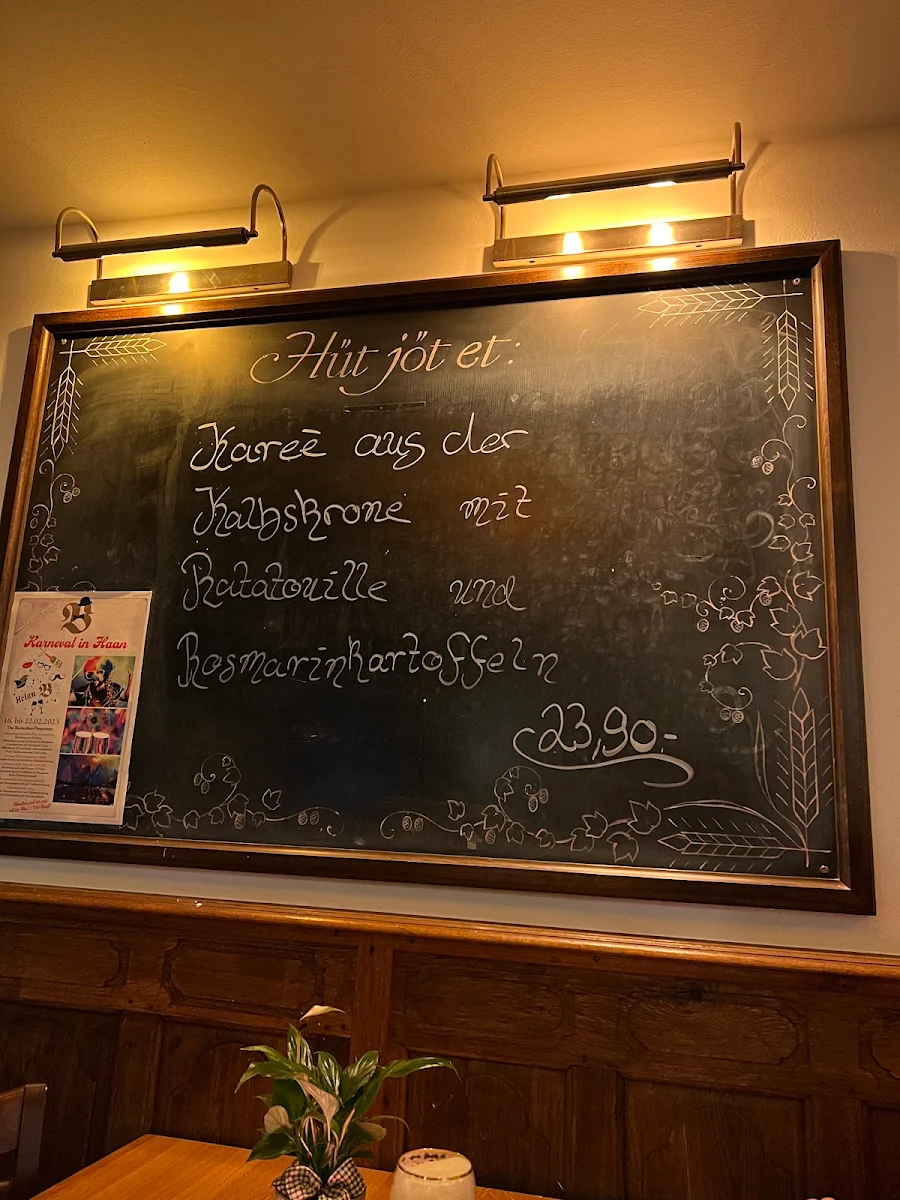 Hüt jöt et:
Kareé aus der
Kalbskrone mit
Ratatouille und
Rosmarinkartoffeln
23,90.-
B
Karneval in Haan
Helau B
16. bis 22.02.2023